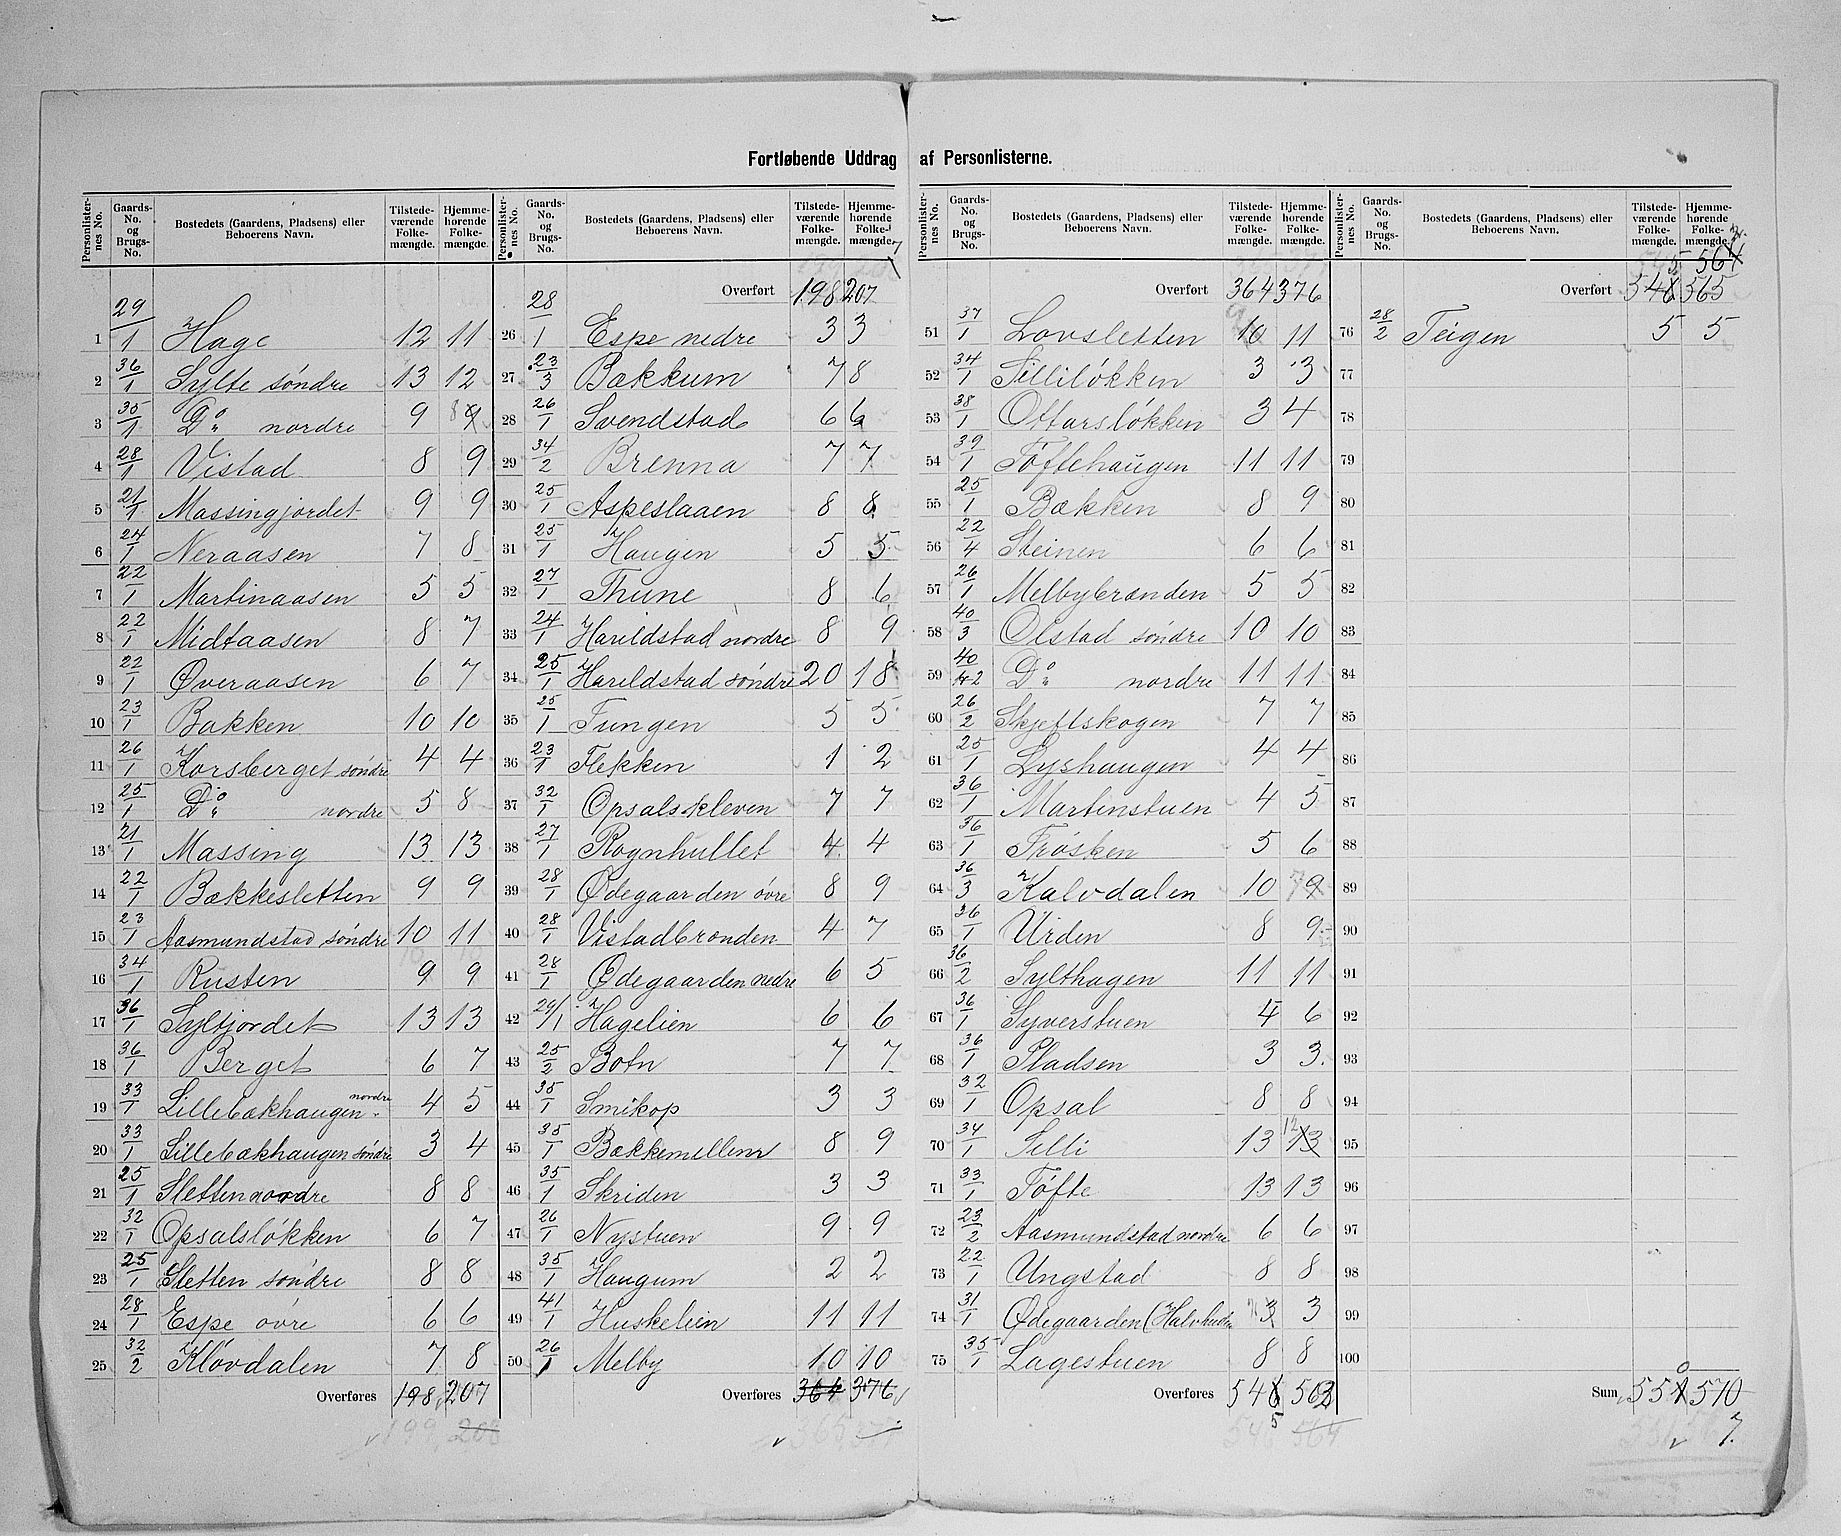 Fortløbende Uddrag af Personlisterne.
Personlister-nes No. Gaards-No. og Brugs-No. Bostedets (Gaardens, Pladsens) eller Beboerens Navn. Tilstede-værende Folke-mængde. Hjemme-hørende Folke-mængde.
1 29/1 Hage 12 11
2 36/1 Sylte søndre 13 12
3 35/1 Do nordre 9 9
4 28/1 Vistad 8 9
5 21/1 Massingjordet 9 9
6 24/1 Neraasen 7 8
7 22/1 Martinaasen 5 5
8 22/1 Midtaasen 8 7
9 22/1 Øveraasen 6 7
10 23/1 Bakken 10 10
11 26/1 Korsberget søndre 4 4
12 25/1 Do nordre 5 8
13 21/1 Massing 13 13
14 22/1 Bækkesletten 9 9
15 23/1 Aasmundstad søndre 10 11
16 34/1 Rusten 9 9
17 36/1 Syltjordet 13 13
18 36/1 Berget 6 7
19 33/1 Lillebækhaugen nordre 4 5
20 33/1 Lillebækhaugen søndre 3 4
21 25/1 Sletten nordre 8 8
22 32/1 Opsalsløkken 6 7
23 25/1 Sletten søndre 8 8
24 28/1 Espe øvre 6 6
25 32/2 Kløvdalen 7 8
Overføres 198 207
199 208
Personlister-nes No. Gaards-No. og Brugs-No. Bostedets (Gaardens, Pladsens) eller Beboerens Navn. Tilstede-værende Folke-mængde. Hjemme-hørende Folke-mængde.
Overført 198 207
26 28/1 Espe nedre 3 3
27 23/3 Bakkum 7 8
28 26/1 Svendstad 6 6
29 34/2 Brenna 7 7
30 25/1 Aspeslaaen 8 8
31 25/1 Haugen 5 5
32 27/1 Thune 8 6
33 24/1 Hareldstad nordre 8 9
34 25/1 Hareldstad søndre 20 18
35 25/1 Tungen 5 5
36 23/1 Flekken 1 2
37 32/1 Opsalskleven 7 7
38 27/1 Rognhullet 4 4
39 28/1 Ødegaarden øvre 8 9
40 28/1 Vistadbrænden 4 7
41 28/1 Ødegaarden nedre 6 5
42 29/1 Hagelien 6 6
43 25/2 Botn 7 7
44 35/1 Smikop 3 3
45 35/1 Bækkemellem 8 9
46 35/1 Skriden 3 3
47 26/1 Nystuen 9 9
48 35/1 Haugum 2 2
49 41/1 Huskelien 11 11
50 26/1 Melby 10 10
Overføres 364 376
365 377
Personlister-nes No. Gaards-No. og Brugs-No. Bostedets (Gaardens, Pladsens) eller Beboerens Navn. Tilstede-værende Folke-mængde. Hjemme-hørende Folke-mængde.
Overført 364 376
51 37/1 Lovsletten 10 11
52 34/1 Silliløkken 3 3
53 38/1 Ottarsløkken 3 4
54 39/1 Tøftehaugen 11 11
55 25/1 Bækken 8 9
56 22/4 Steinen 6 6
57 26/1 Melbybrænden 5 5
58 40/3 Olstad søndre 10 10
59 40/2 Do nordre 11 11
60 26/2 Skjeftskogen 7 7
61 25/1 Lyshaugen 4 4
62 36/1 Martinstuen 4 5
63 36/1 Frøsken 5 6
64 36/3 Kalvdalen 10 9
65 36/1 Urden 8 9
66 36/2 Sylthagen 11 11
67 36/1 Syverstuen 4 6
68 36/1 Pladsen 3 3
69 32/1 Opsal 8 8
70 34/1 Silli 13 12 13
71 33/1 Tøfte 13 13
72 23/2 Aasmundstad nordre 6 6
73 22/1 Ungstad 8 8
74 31/1 Ødegaarden 3 3
75 35/1 Lagestuen 8 8
Overføres 546 563
5
545 564
Personlister-nes No. Gaards-No. og Brugs-No. Bostedets (Gaardens, Pladsens) eller Beboerens Navn. Tilstede-værende Folke-mængde. Hjemme-hørende Folke-mængde.
5 564
Overført 546 565
76 28/2 Teigen 5 5
77
78
79
80
81
82
83
84
85
86
87
88
89
90
91
92
93
94
95
96
97
98
99
100
0
Sum 551 570
7.